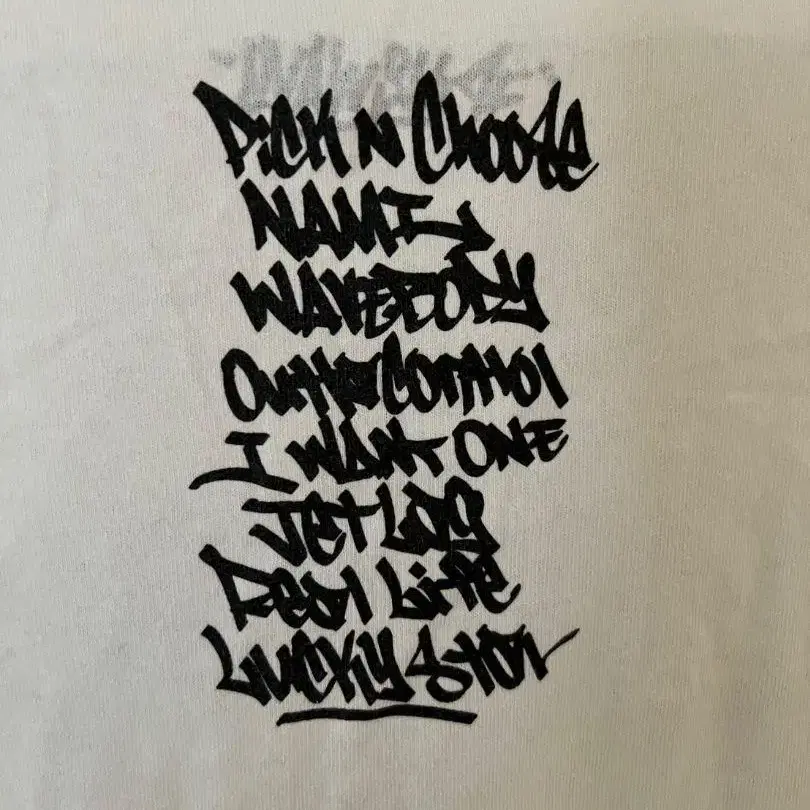 Pick N Choose
NAME
WAVEBODY
Outta Control
I WANT ONE
Jet Lag
Real Life
Lucky Star